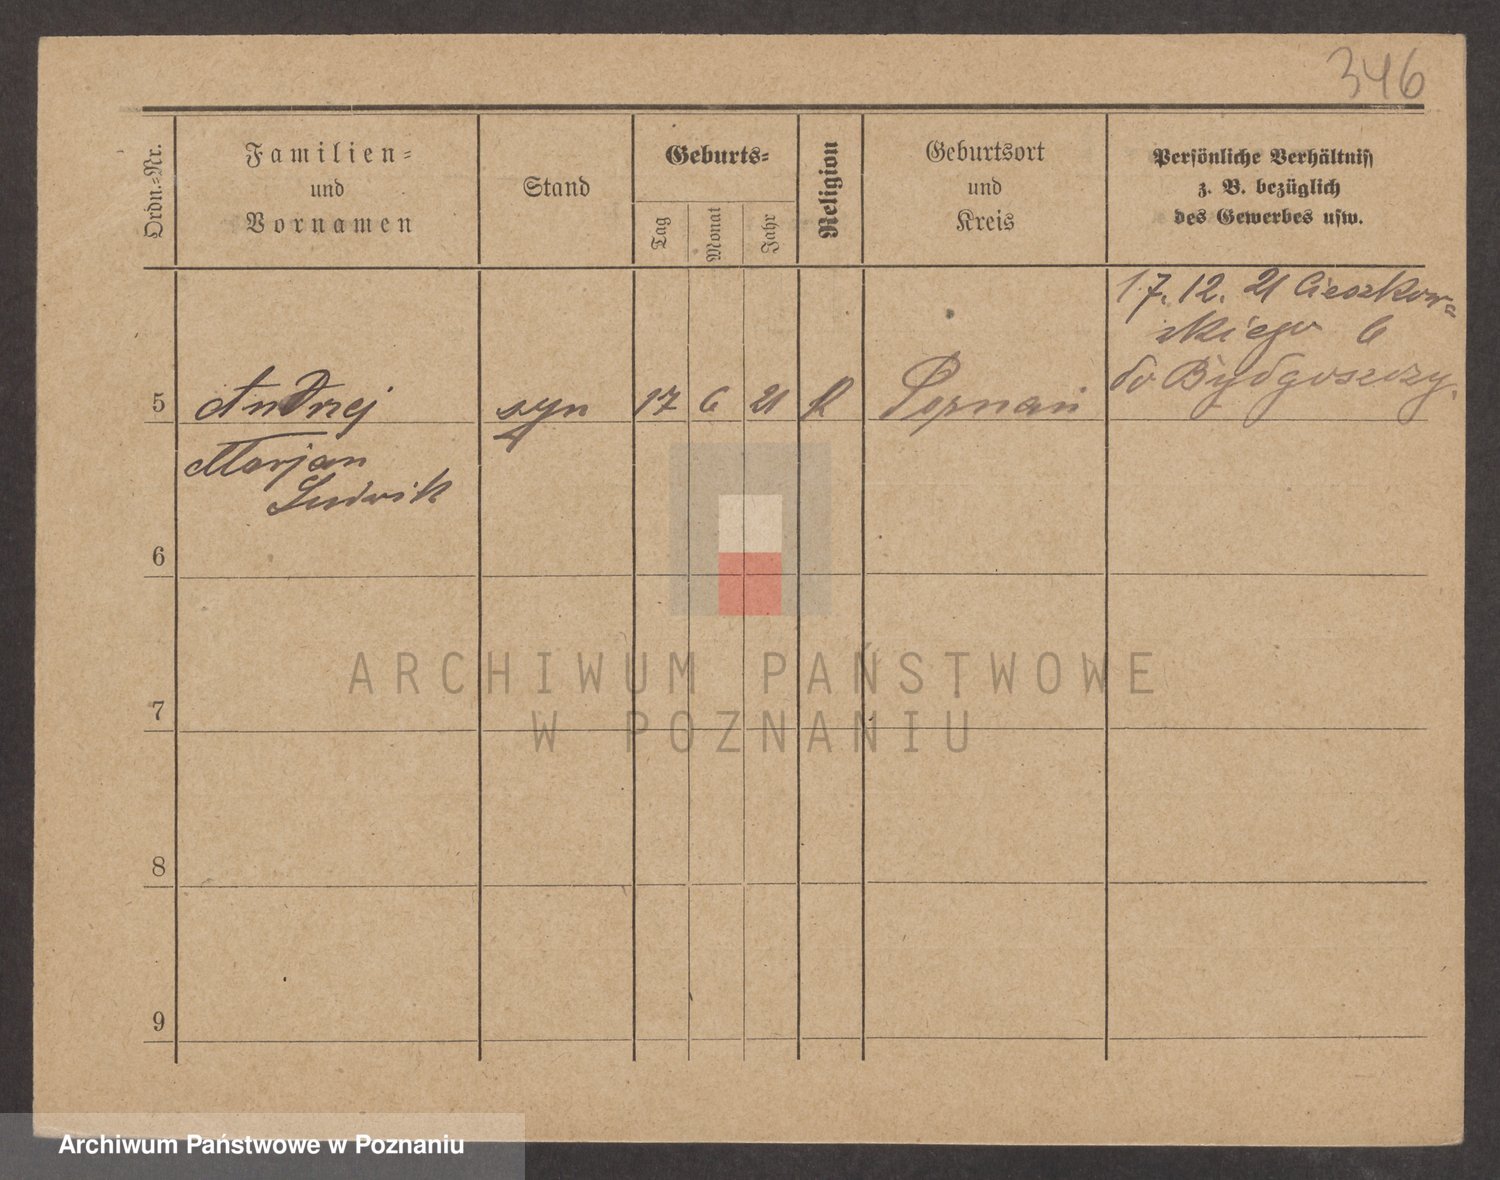 346
Ordn.-Nr.
Familien-
und
Vornamen
Stand
Geburts-
Tag
Monat
Jahr
Religion
Geburtsort
und
Kreis
Persönliche Verhältniss
z. B. bezüglich
des Gewerbes usw.
17. 12. 21 Cieszkow-
skiego 6
do Bydgoszczy.
5 Andrzej syn 17 6 21 k Poznań
Marjan
Ludwik
6
7
8
9
ARCHIWUM PAŃSTWOWE
W POZNANIU
Archiwum Państwowe w Poznaniu